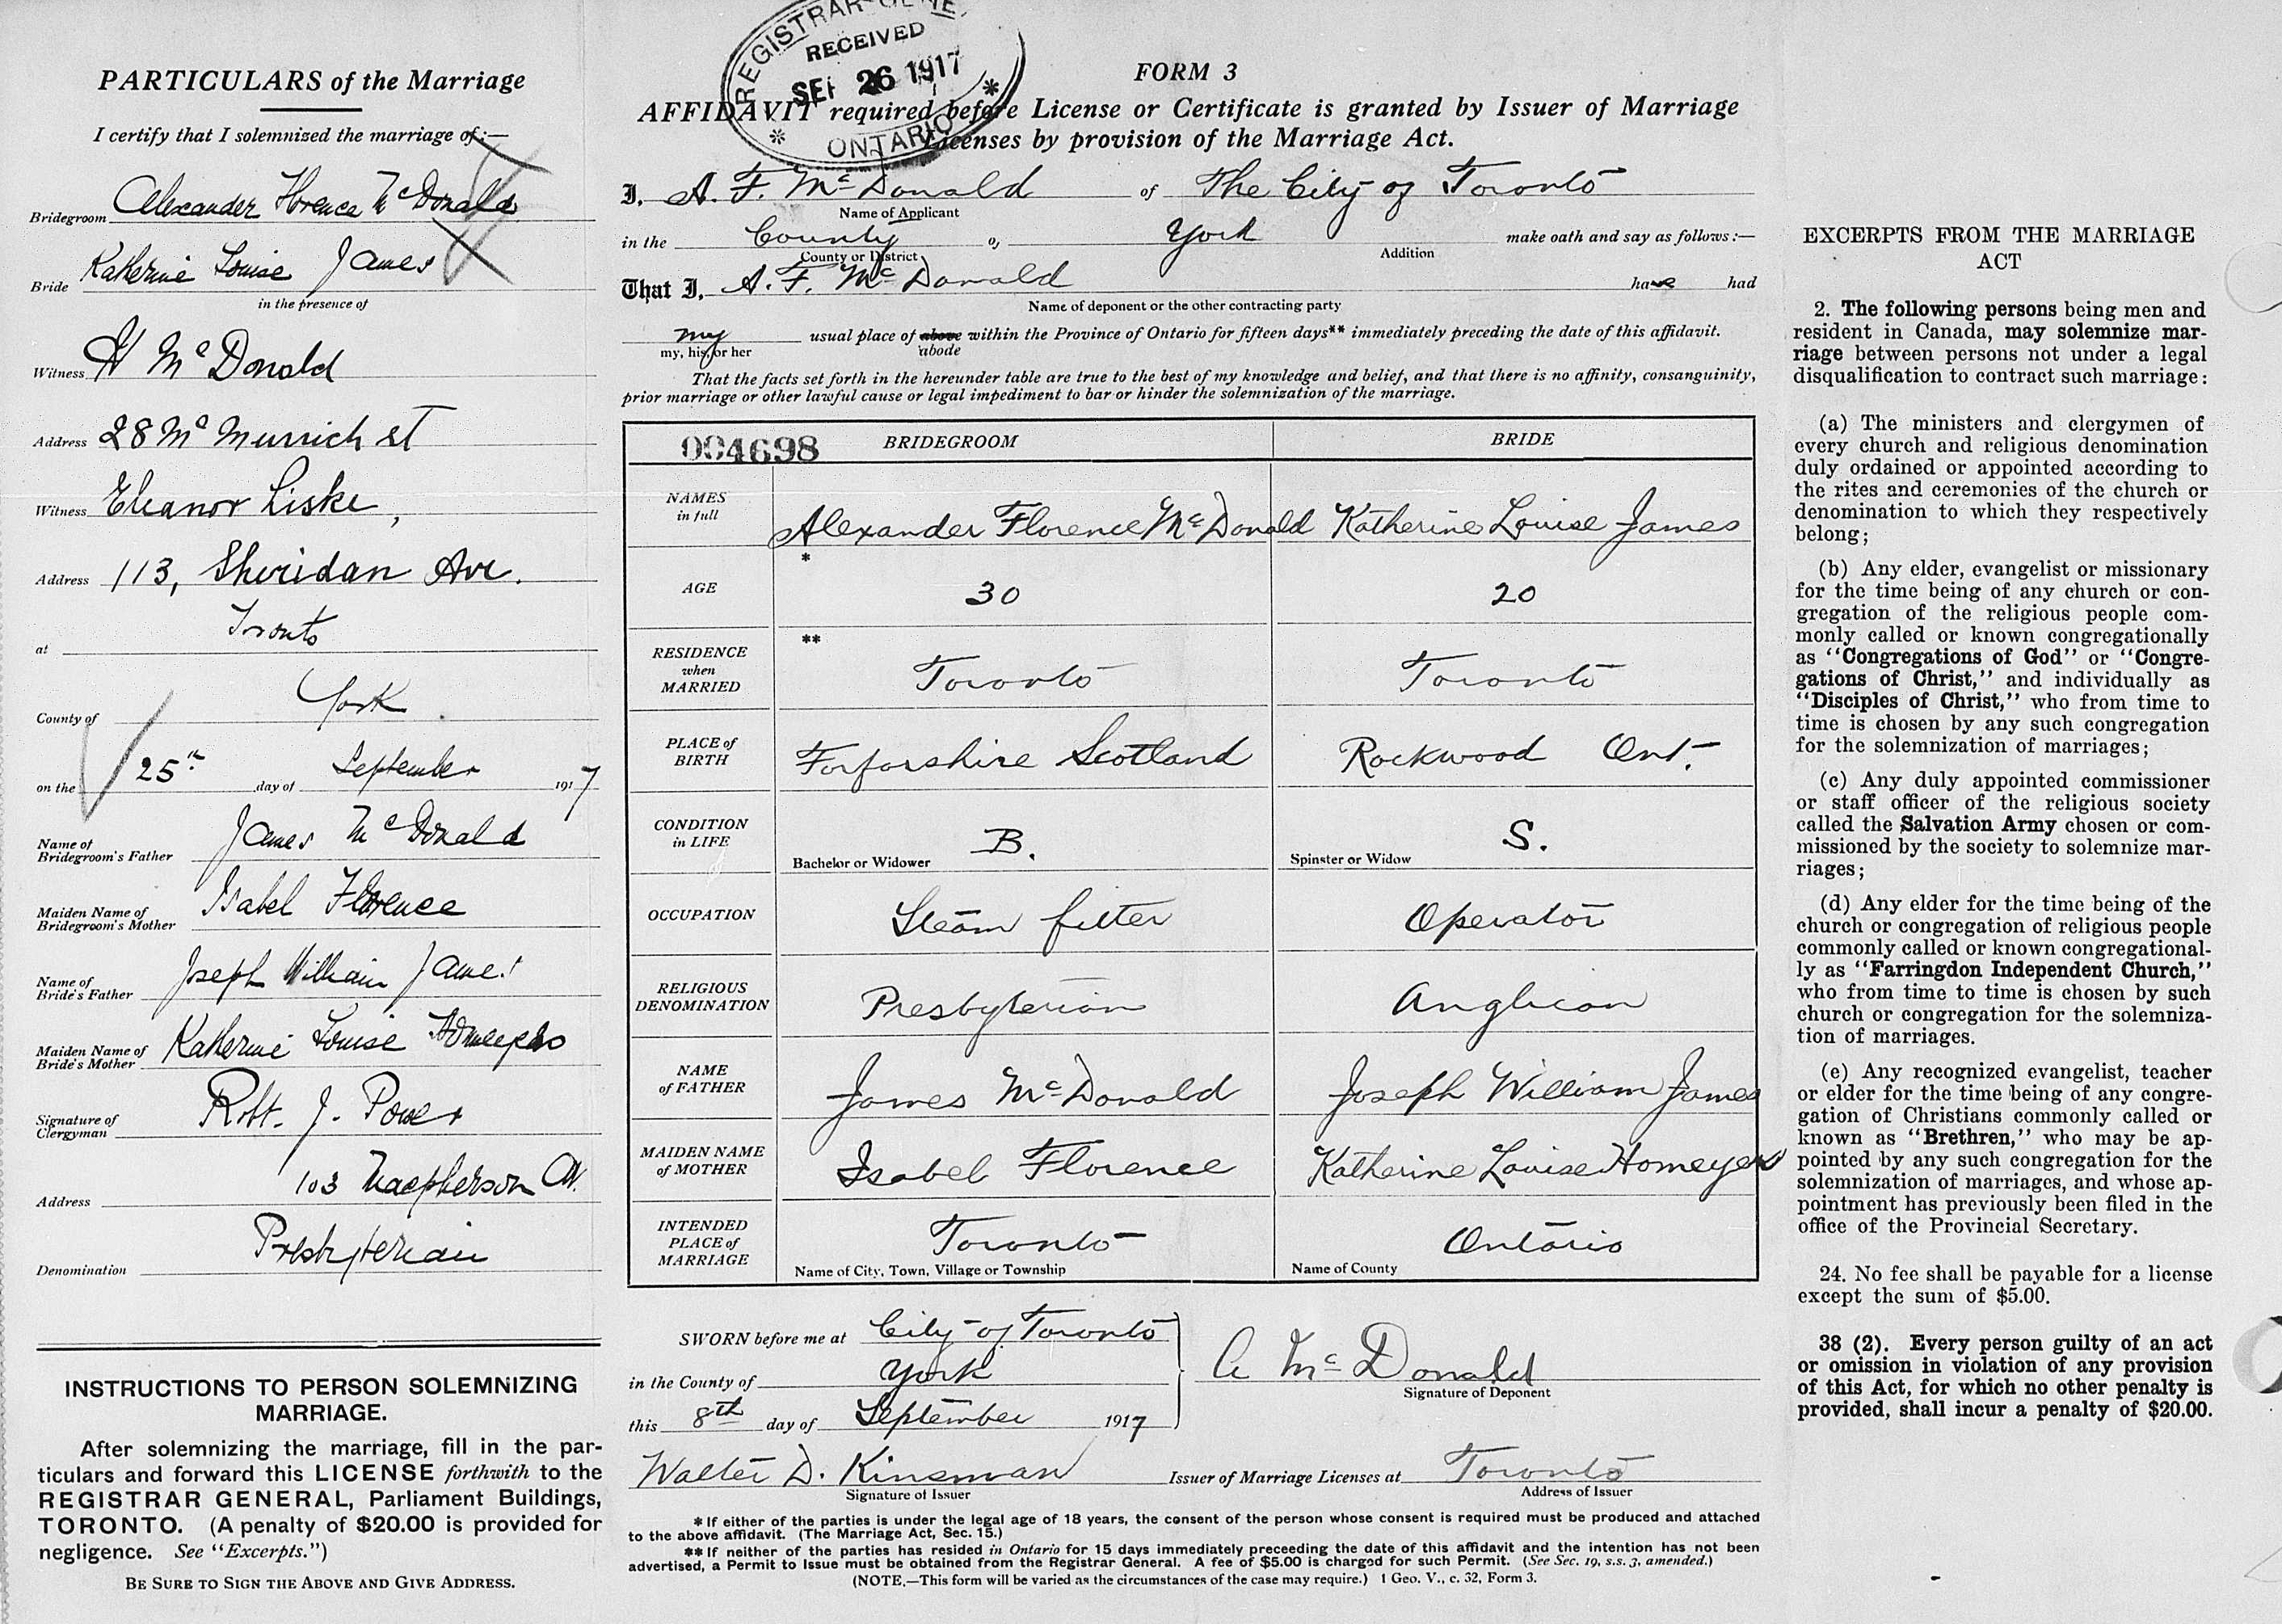 PARTICULARS of the Marriage
I certify that I solemnized the marriage of:—
Bridegroom Alexander Florence McDonald
Bride Katherine Louise James
in the presence of
Witness H McDonald
Address 28 McMurrich st
Witness Eleanor Liske,
Address 113, Sheridan Ave.
at Toronto
County of York
on the 25th day of September 1917
Name of Bridegroom's Father James McDonald
Maiden Name of Bridegroom's Mother Isabel Florence
Name of Bride's Father Joseph William James
Maiden Name of Bride's Mother Katherine Louise Homeyers
Signature of Clergyman Robt. J. Power
Address 103 Macpherson Av.
Denomination Presbyterian
INSTRUCTIONS TO PERSON SOLEMNIZING
MARRIAGE.
After solemnizing the marriage, fill in the par-
ticulars and forward this LICENSE forthwith to the
REGISTRAR GENERAL, Parliament Buildings,
TORONTO. (A penalty of $20.00 is provided for
negligence. See "Excerpts.")
BE SURE TO SIGN THE ABOVE AND GIVE ADDRESS.
REGISTRAR GENE
RECEIVED
SEP 26 1917
ONTARIO
FORM 3
AFFIDAVIT required before License or Certificate is granted by Issuer of Marriage
Licenses by provision of the Marriage Act.
I, A. F. McDonald of The City of Toronto
Name of Applicant
in the County of York make oath and say as follows:—
County or District Addition
That I, A. F. McDonald have had
Name of deponent or the other contracting party
my usual place of above within the Province of Ontario for fifteen days** immediately preceding the date of this affidavit.
my, his, or her abode
That the facts set forth in the hereunder table are true to the best of my knowledge and belief, and that there is no affinity, consanguinity,
prior marriage or other lawful cause or legal impediment to bar or hinder the solemnization of the marriage.
004698 BRIDEGROOM BRIDE
NAMES in full Alexander Florence McDonald Katherine Louise James
*
AGE 30 20
**
RESIDENCE when MARRIED Toronto Toronto
PLACE of BIRTH Forfarshire Scotland Rockwood Ont.
CONDITION in LIFE Bachelor or Widower B. Spinster or Widow S.
OCCUPATION Steam fitter Operator
RELIGIOUS DENOMINATION Presbyterian Anglican
NAME of FATHER James McDonald Joseph William James
MAIDEN NAME of MOTHER Isabel Florence Katherine Louise Homeyers
INTENDED PLACE of MARRIAGE Toronto Ontario
Name of City, Town, Village or Township Name of County
SWORN before me at City of Toronto
in the County of York
A McDonald
Signature of Deponent
this 8th day of September 1917
Walter D. Kinsman Issuer of Marriage Licenses at Toronto
Signature of Issuer Address of Issuer
* If either of the parties is under the legal age of 18 years, the consent of the person whose consent is required must be produced and attached
to the above affidavit. (The Marriage Act, Sec. 15.)
** If neither of the parties has resided in Ontario for 15 days immediately preceeding the date of this affidavit and the intention has not been
advertised, a Permit to Issue must be obtained from the Registrar General. A fee of $5.00 is charged for such Permit. (See Sec. 19, s.s. 3, amended.)
(NOTE.—This form will be varied as the circumstances of the case may require.) 1 Geo. V., c. 32, Form 3.
EXCERPTS FROM THE MARRIAGE
ACT
2. The following persons being men and
resident in Canada, may solemnize mar-
riage between persons not under a legal
disqualification to contract such marriage:
(a) The ministers and clergymen of
every church and religious denomination
duly ordained or appointed according to
the rites and ceremonies of the church or
denomination to which they respectively
belong;
(b) Any elder, evangelist or missionary
for the time being of any church or con-
gregation of the religious people com-
monly called or known congregationally
as "Congregations of God" or "Congre-
gations of Christ," and individually as
"Disciples of Christ," who from time to
time is chosen by any such congregation
for the solemnization of marriages;
(c) Any duly appointed commissioner
or staff officer of the religious society
called the Salvation Army chosen or com-
missioned by the society to solemnize mar-
riages;
(d) Any elder for the time being of the
church or congregation of religious people
commonly called or known congregational-
ly as "Farringdon Independent Church,"
who from time to time is chosen by such
church or congregation for the solemniza-
tion of marriages.
(e) Any recognized evangelist, teacher
or elder for the time being of any congre-
gation of Christians commonly called or
known as "Brethren," who may be ap-
pointed by any such congregation for the
solemnization of marriages, and whose ap-
pointment has previously been filed in the
office of the Provincial Secretary.
24. No fee shall be payable for a license
except the sum of $5.00.
38 (2). Every person guilty of an act
or omission in violation of any provision
of this Act, for which no other penalty is
provided, shall incur a penalty of $20.00.